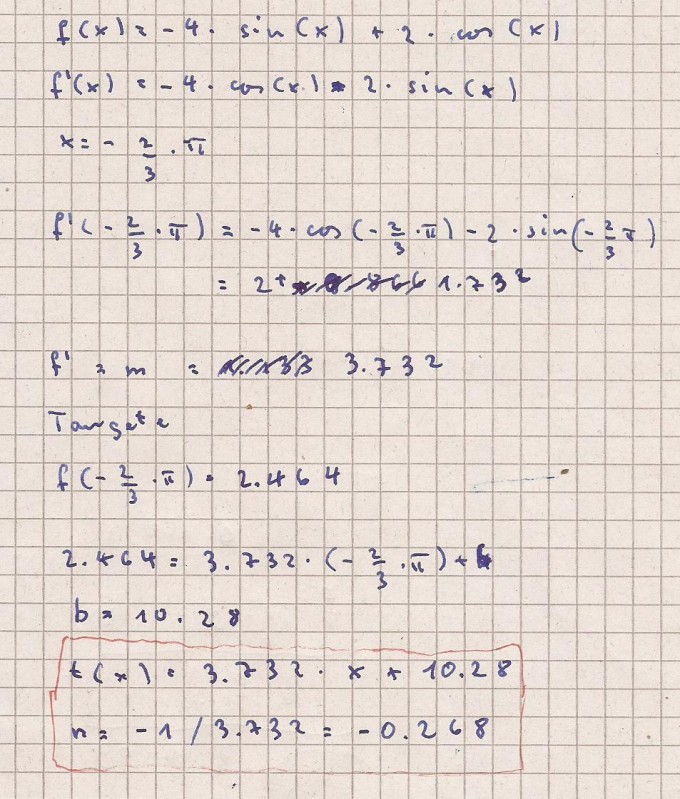 f(x) = -4 · sin(x) + 2 · cos(x)
f'(x) = -4 · cos(x) - 2 · sin(x)
x = - 2/3 · π
f'(- 2/3 · π) = -4 · cos(- 2/3 · π) - 2 · sin(- 2/3 π)
= 2 + 1.732
f' = m = 3.732
Tangete
f(- 2/3 · π) = 2.464
2.464 = 3.732 · (- 2/3 · π) + b
b = 10.28
t(x) = 3.732 · x + 10.28
n = -1 / 3.732 = -0.268